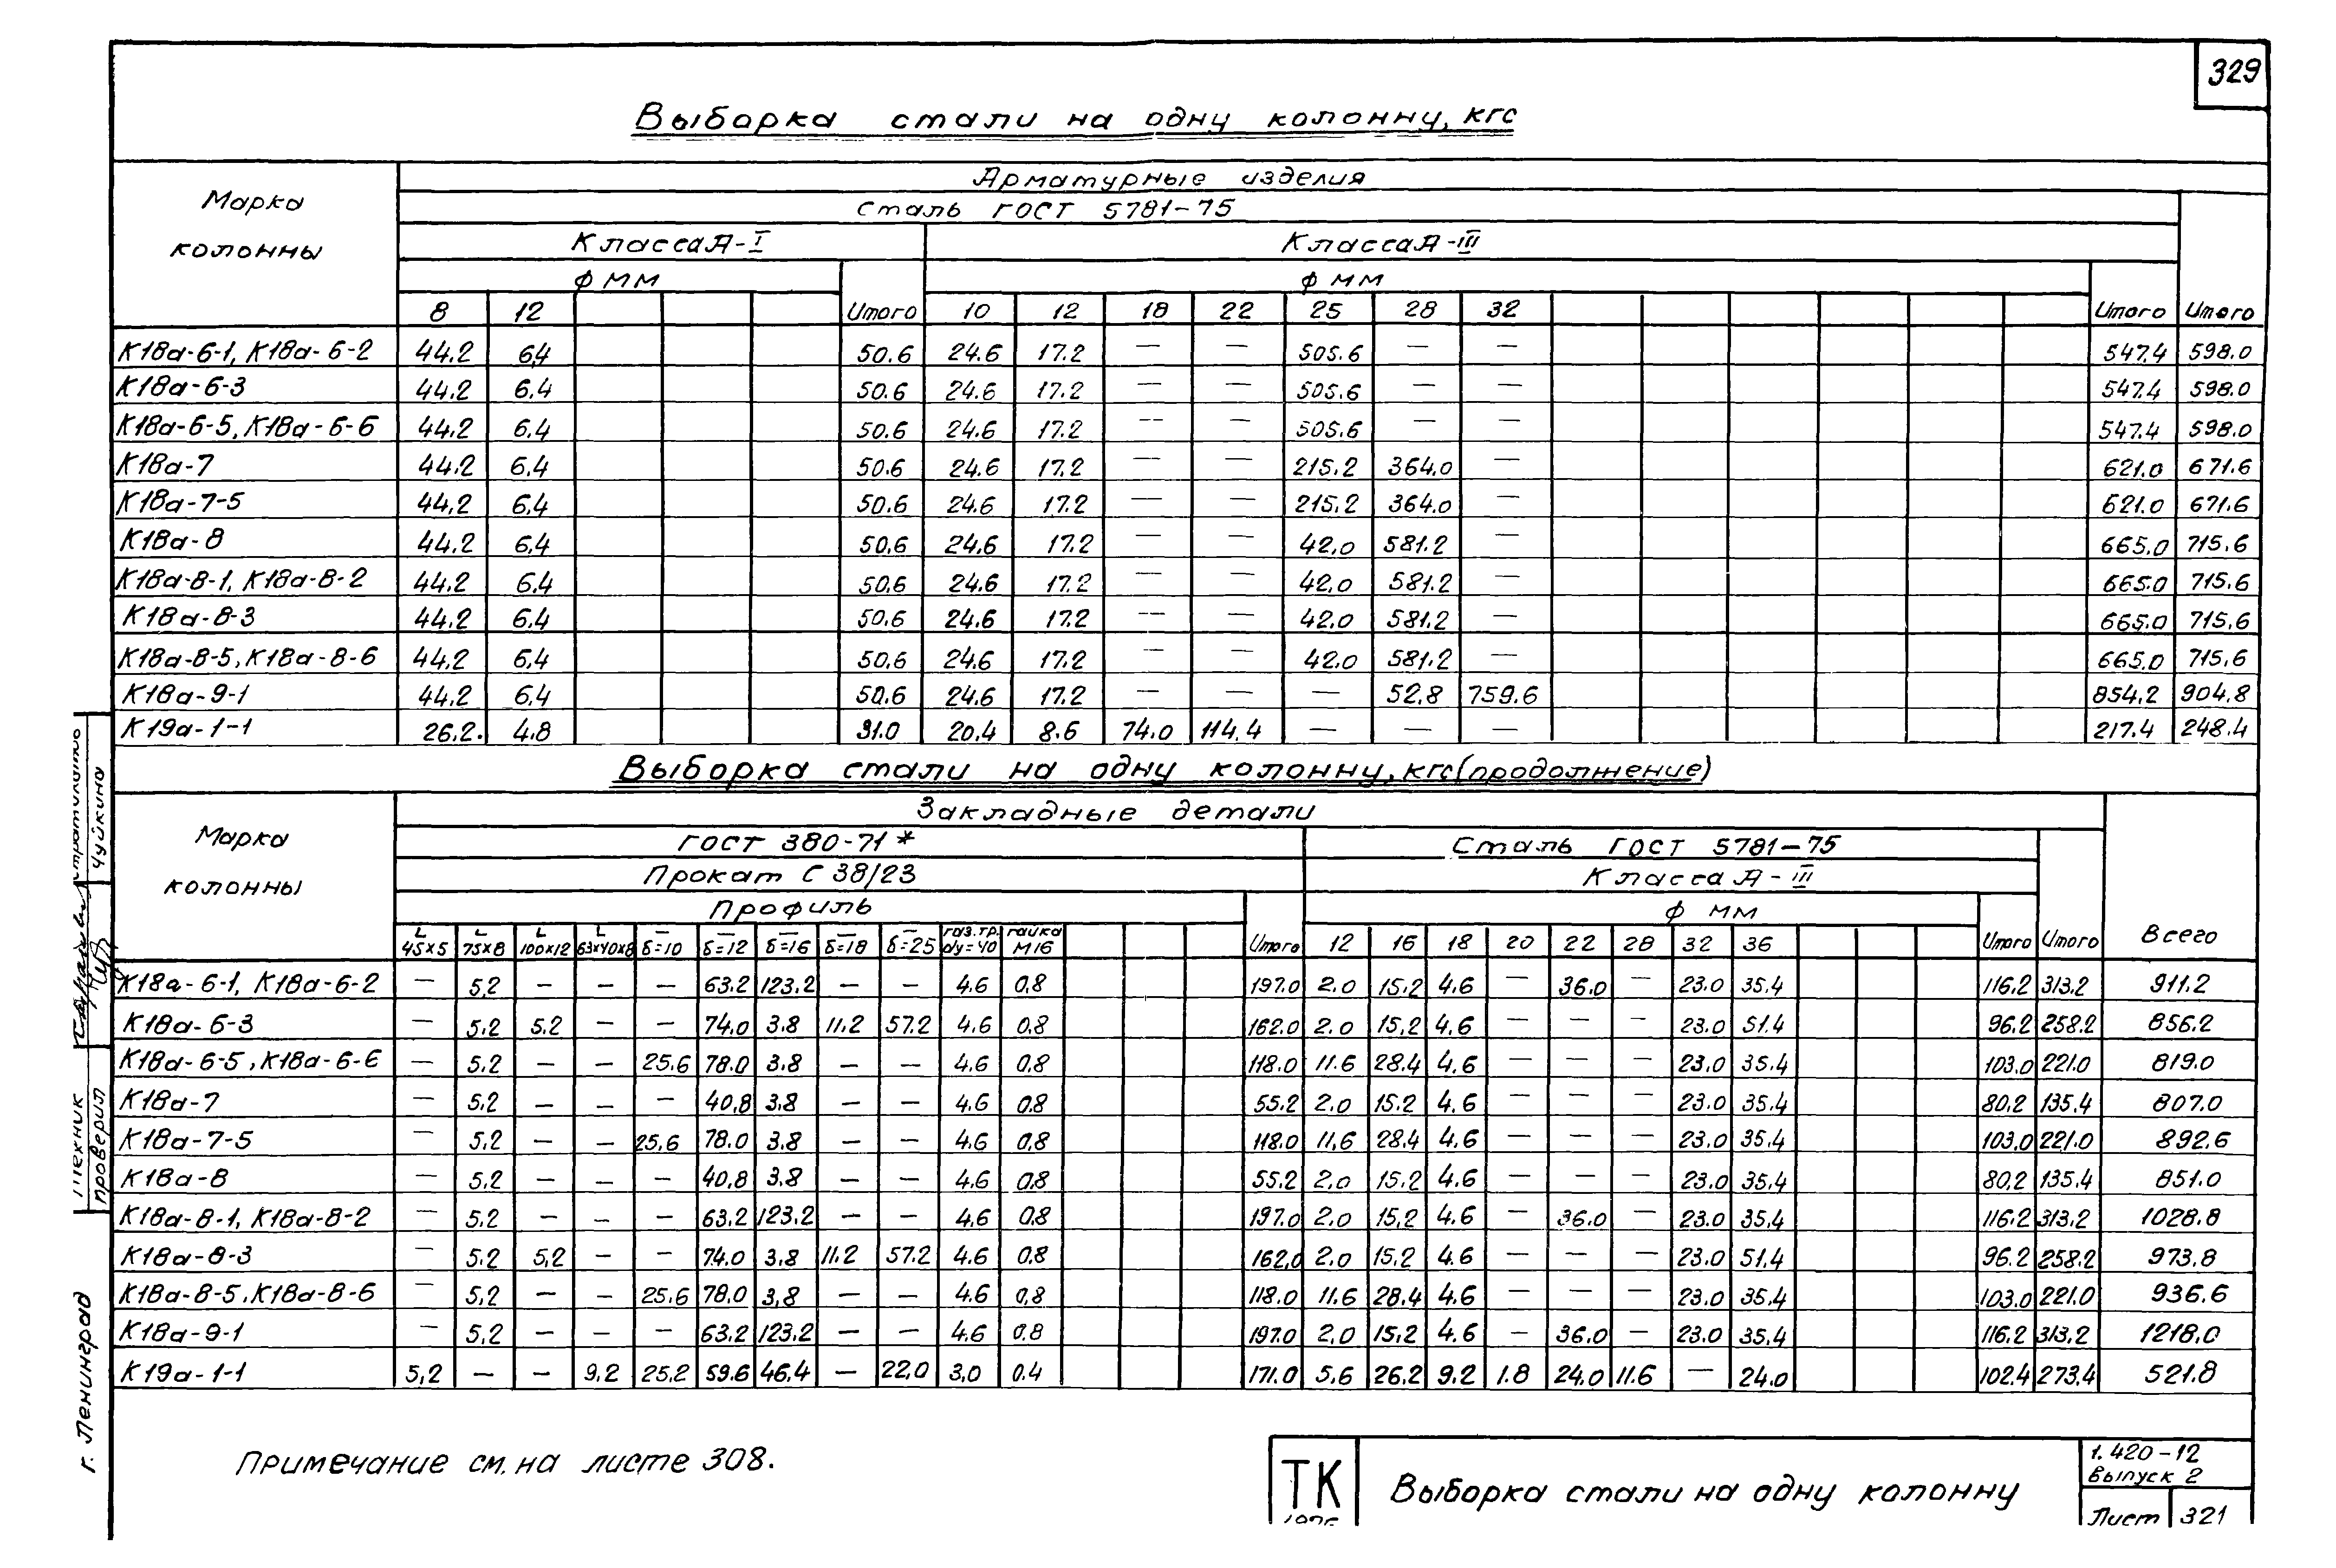 329
Выборка стали на одну колонну, кгс
Марка колонны
Арматурные изделия
Сталь ГОСТ 5781-75
Класса А-I
Класса А-III
ф мм
ф мм
8 12 Итого 10 12 18 22 25 28 32 Итого Итого
К18а-6-1, К18а-6-2 44.2 6,4 50.6 24.6 17.2 — — 505.6 — — 547.4 598.0
К18а-6-3 44.2 6.4 50.6 24.6 17.2 — — 505.6 — — 547.4 598.0
К18а-6-5, К18а-6-6 44.2 6.4 50.6 24.6 17.2 — — 505.6 — — 547.4 598.0
К18а-7 44.2 6.4 50.6 24.6 17.2 — — 215.2 364.0 — 621.0 671.6
К18а-7-5 44.2 6.4 50.6 24.6 17.2 — — 215.2 364.0 — 621.0 671.6
К18а-8 44.2 6.4 50.6 24.6 17.2 — — 42.0 581.2 — 665.0 715.6
К18а-8-1, К18а-8-2 44.2 6.4 50.6 24.6 17.2 — — 42.0 581.2 — 665.0 715.6
К18а-8-3 44.2 6.4 50.6 24.6 17.2 — — 42.0 581.2 — 665.0 715.6
К18а-8-5, К18а-8-6 44.2 6.4 50.6 24.6 17.2 — — 42.0 581.2 — 665.0 715.6
К18а-9-1 44.2 6.4 50.6 24.6 17.2 — — — 52.8 759.6 854.2 904.8
К19а-1-1 26.2. 4.8 31.0 20.4 8.6 74.0 114.4 — — — 217.4 248.4
Выборка стали на одну колонну, кгс (продолжение)
Марка колонны
Закладные детали
ГОСТ 380-71*
Сталь ГОСТ 5781-75
Прокат С 38/23
Класса А-III
Профиль
ф мм
L 45×5 L 75×8 L 100×12 L 63×40×8 δ=10 δ=12 δ=16 δ=18 δ=25 газ.тр. dy=40 гайка М16 Итого 12 16 18 20 22 28 32 36 Итого Итого Всего
К18а-6-1, К18а-6-2 — 5.2 — — — 63.2 123.2 — — 4.6 0.8 197.0 2.0 15.2 4.6 — 36.0 — 23.0 35.4 116.2 313.2 911.2
К18а-6-3 — 5.2 5.2 — — 74.0 3.8 11.2 57.2 4.6 0.8 162.0 2.0 15.2 4.6 — — — 23.0 51.4 96.2 258.2 856.2
К18а-6-5, К18а-6-6 — 5.2 — — 25.6 78.0 3.8 — — 4.6 0.8 118.0 11.6 28.4 4.6 — — — 23.0 35.4 103.0 221.0 819.0
К18а-7 — 5.2 — — — 40.8 3.8 — — 4.6 0.8 55.2 2.0 15.2 4.6 — — — 23.0 35.4 80.2 135.4 807.0
К18а-7-5 — 5.2 — — 25.6 78.0 3.8 — — 4.6 0.8 118.0 11.6 28.4 4.6 — — — 23.0 35.4 103.0 221.0 892.6
К18а-8 — 5.2 — — — 40.8 3.8 — — 4.6 0.8 55.2 2.0 15.2 4.6 — — — 23.0 35.4 80.2 135.4 851.0
К18а-8-1, К18а-8-2 — 5.2 — — — 63.2 123.2 — — 4.6 0.8 197.0 2.0 15.2 4.6 — 36.0 — 23.0 35.4 116.2 313.2 1028.8
К18а-8-3 — 5.2 5.2 — — 74.0 3.8 11.2 57.2 4.6 0.8 162.0 2.0 15.2 4.6 — — — 23.0 51.4 96.2 258.2 973.8
К18а-8-5, К18а-8-6 — 5.2 — — 25.6 78.0 3.8 — — 4.6 0.8 118.0 11.6 28.4 4.6 — — — 23.0 35.4 103.0 221.0 936.6
К18а-9-1 — 5.2 — — — 63.2 123.2 — — 4.6 0.8 197.0 2.0 15.2 4.6 — 36.0 — 23.0 35.4 116.2 313.2 1218.0
К19а-1-1 5.2 — — 9.2 25.2 59.6 46.4 — 22.0 3.0 0.4 171.0 5.6 26.2 9.2 1.8 24.0 11.6 — 24.0 102.4 273.4 521.8
Примечание см. на листе 308.
ТК
Выборка стали на одну колонну
1.420-12
выпуск 2
Лист 321
Чуйкина
Техник
проверил
г. Ленинград